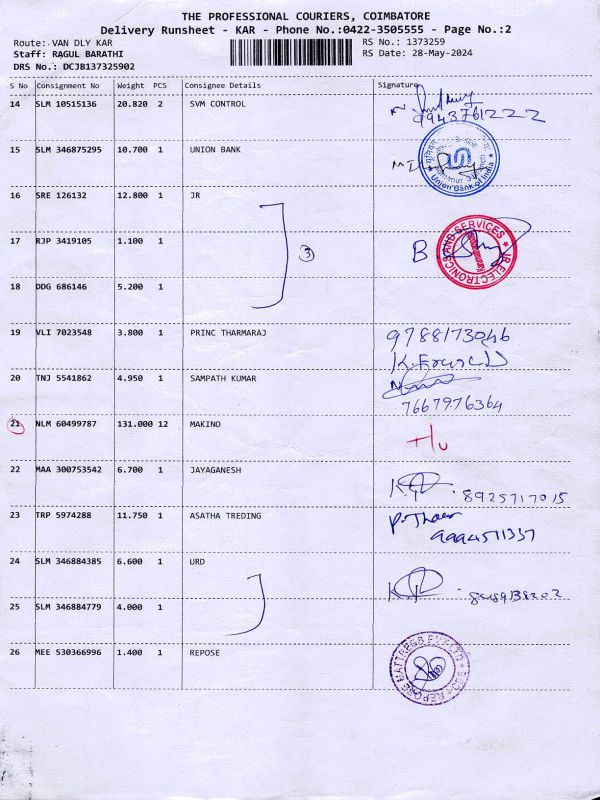 THE PROFESSIONAL COURIERS, COIMBATORE
Delivery Runsheet - KAR - Phone No.:0422-3505555 - Page No.:2
Route: VAN DLY KAR RS No.: 1373259
Staff: RAGUL BARATHI RS Date: 28-May-2024
DRS No.: DCJB137325902
S No Consignment No Weight PCS Consignee Details Signature
14 SLM 10515136 20.820 2 SVM CONTROL
9943761222
15 SLM 346875295 10.700 1 UNION BANK
Union Bank of India
16 SRE 126132 12.800 1 JR
17 RJP 3419105 1.100 1 3 B
JR ELECTRONICS AND SERVICES
18 DDG 686146 5.200 1
19 VLI 7023548 3.800 1 PRINC THARMARAJ 9788173046
20 TNJ 5541862 4.950 1 SAMPATH KUMAR
7667976364
21 NLM 60499787 131.000 12 MAKINO
22 MAA 300753542 6.700 1 JAYAGANESH
8925717015
23 TRP 5974288 11.750 1 ASATHA TREDING
9994511337
24 SLM 346884385 6.600 1 URD
25 SLM 346884779 4.000 1
26 MEE 530366996 1.400 1 REPOSE
REPOSE MATTRESS PVT LTD